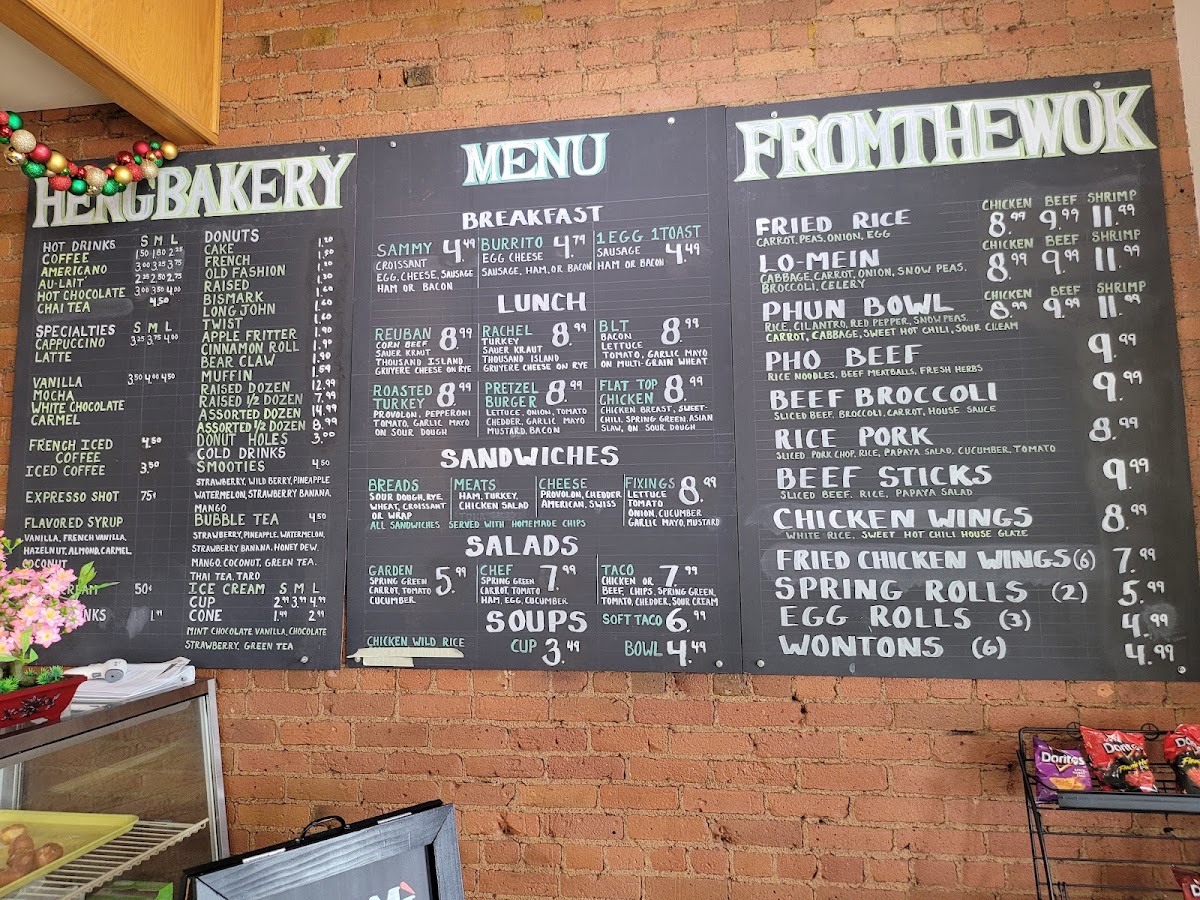 HENGBAKERY
HOT DRINKS S M L
COFFEE 1.50 1.80 2.25
AMERICANO 3.00 3.25 3.75
AU-LAIT 2.25 2.50 2.75
HOT CHOCOLATE 3.00 3.50 4.00
CHAI TEA 4.50
SPECIALTIES S M L
CAPPUCCINO 3.25 3.75 4.00
LATTE
VANILLA 3.50 4.00 4.50
MOCHA
WHITE CHOCOLATE
CARMEL
FRENCH ICED 4.50
COFFEE
ICED COFFEE 3.50
EXPRESSO SHOT 75¢
FLAVORED SYRUP
VANILLA, FRENCH VANILLA,
HAZELNUT, ALMOND, CARMEL,
50¢
1.99
DONUTS
CAKE
FRENCH
OLD FASHION
RAISED
BISMARK
LONG JOHN
TWIST
APPLE FRITTER
CINNAMON ROLL
BEAR CLAW
MUFFIN
RAISED DOZEN 12.99
RAISED 1/2 DOZEN 7.99
ASSORTED DOZEN 14.99
ASSORTED 1/2 DOZEN 8.99
DONUT HOLES 3.00
COLD DRINKS
SMOOTIES 4.50
STRAWBERRY, WILD BERRY, PINEAPPLE
WATERMELON, STRAWBERRY BANANA,
MANGO
BUBBLE TEA 4.50
STRAWBERRY, PINEAPPLE, WATERMELON,
STRAWBERRY BANANA, HONEY DEW,
MANGO, COCONUT, GREEN TEA,
THAI TEA, TARO
ICE CREAM S M L
CUP 2.99 3.99 4.99
CONE 1.99 2.99
MINT CHOCOLATE VANILLA, CHOCOLATE
STRAWBERRY, GREEN TEA
MENU
BREAKFAST
SAMMY 4.49
CROISSANT
EGG, CHEESE, SAUSAGE
HAM OR BACON
BURRITO 4.79
EGG CHEESE
SAUSAGE, HAM, OR BACON
1 EGG 1 TOAST
SAUSAGE 4.49
HAM OR BACON
LUNCH
REUBAN 8.99
CORN BEEF
SAUER KRAUT
THOUSAND ISLAND
GRUYERE CHEESE ON RYE
RACHEL 8.99
TURKEY
SAUER KRAUT
THOUSAND ISLAND
GRUYERE CHEESE ON RYE
BLT 8.99
BACON
LETTUCE
TOMATO, GARLIC MAYO
ON MULTI-GRAIN WHEAT
ROASTED 8.99
TURKEY
PROVOLON, PEPPERONI
TOMATO, GARLIC MAYO
ON SOUR DOUGH
PRETZEL 8.99
BURGER
LETTUCE, ONION, TOMATO
CHEDDER, GARLIC MAYO
MUSTARD, BACON
FLAT TOP 8.99
CHICKEN
CHICKEN BREAST, SWEET-
CHILI, SPRING GREEN, ASIAN
SLAW, ON SOUR DOUGH
SANDWICHES
BREADS
SOUR DOUGH, RYE,
WHEAT, CROISSANT
OR WRAP
MEATS
HAM, TURKEY,
CHICKEN SALAD
CHEESE
PROVOLON, CHEDDER
AMERICAN, SWISS
FIXINGS 8.99
LETTUCE
TOMATO
ONION, CUCUMBER
GARLIC MAYO, MUSTARD
ALL SANDWICHES SERVED WITH HOMEMADE CHIPS
SALADS
GARDEN 5.99
SPRING GREEN
CARROT, TOMATO
CUCUMBER
CHEF 7.99
SPRING GREEN
CARROT, TOMATO
HAM, EGG, CUCUMBER
TACO 7.99
CHICKEN OR
BEEF, CHIPS, SPRING GREEN,
TOMATO, CHEDDER, SOUR CREAM
SOFT TACO 6.99
SOUPS
CHICKEN WILD RICE CUP 3.49 BOWL 4.49
FROM THE WOK
CHICKEN BEEF SHRIMP
FRIED RICE 8.99 9.99 11.99
CARROT, PEAS, ONION, EGG
CHICKEN BEEF SHRIMP
LO-MEIN 8.99 9.99 11.99
CABBAGE, CARROT, ONION, SNOW PEAS,
BROCCOLI, CELERY
CHICKEN BEEF SHRIMP
PHUN BOWL 8.99 9.99 11.99
RICE, CILANTRO, RED PEPPER, SNOW PEAS,
CARROT, CABBAGE, SWEET HOT CHILI, SOUR CREAM
PHO BEEF 9.99
RICE NOODLES, BEEF MEATBALLS, FRESH HERBS
BEEF BROCCOLI 9.99
SLICED BEEF, BROCCOLI, CARROT, HOUSE SAUCE
RICE PORK 8.99
SLICED PORK CHOP, RICE, PAPAYA SALAD, CUCUMBER, TOMATO
BEEF STICKS 9.99
SLICED BEEF, RICE, PAPAYA SALAD
CHICKEN WINGS 8.99
WHITE RICE, SWEET HOT CHILI HOUSE GLAZE
FRIED CHICKEN WINGS (6) 7.99
SPRING ROLLS (2) 5.99
EGG ROLLS (3) 4.99
WONTONS (6) 4.99
Doritos
Doritos